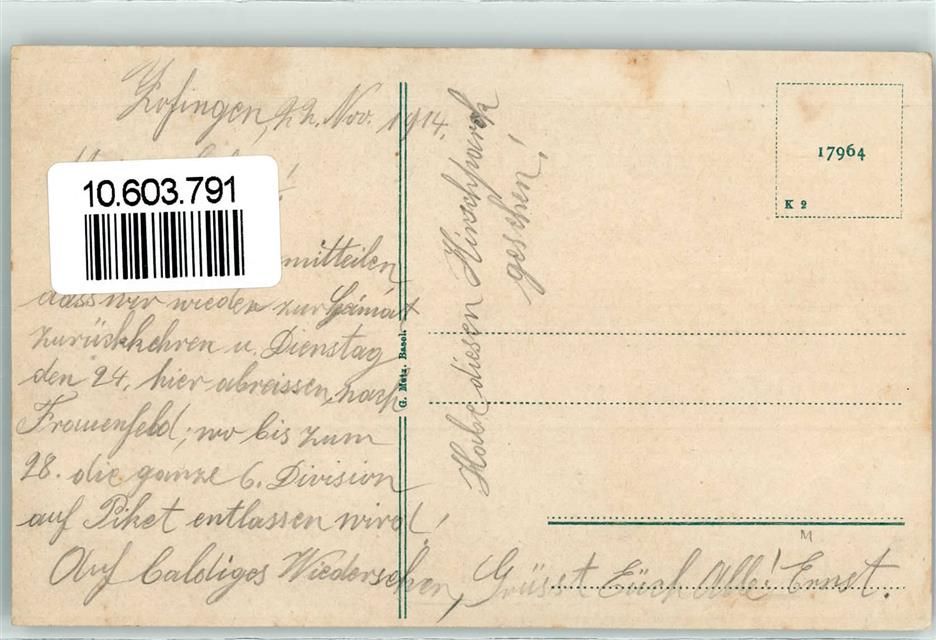 Zofingen, 22. Nov. 1914.
10.603.791
mitteilen
dass wir wieder zur Heimat
zurückkehren u. Dienstag
den 24. hier abreissen, nach
Frauenfeld; wo bis zum
28. die ganze 6. Division
auf Piket entlassen wird!
Auf baldiges Wiedersehen, Grüsst Euch Alle! Ernst.
Habe diesen Hirschpark
gesehen!
G. Metz. Basel.
17964
K 2
M